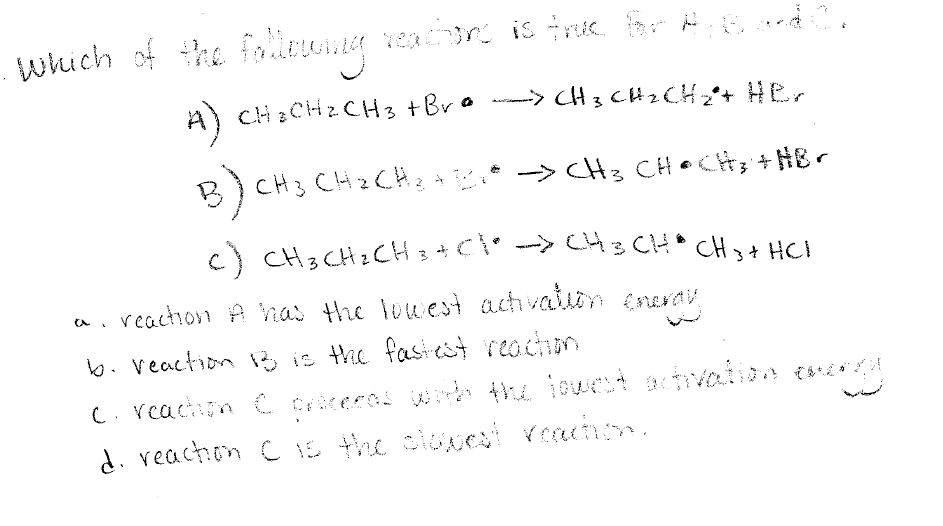 Which of the following reactions is true for A, B and C.
A) CH3CH2CH3 + Br• → CH3CH2CH2• + HBr
B) CH3CH2CH3 + Br• → CH3CH•CH3 + HBr
C) CH3CH2CH3 + Cl• → CH3CH•CH3 + HCl
a. reaction A has the lowest activation energy
b. reaction B is the fastest reaction
c. reaction C proceeds with the lowest activation energy
d. reaction C is the slowest reaction.